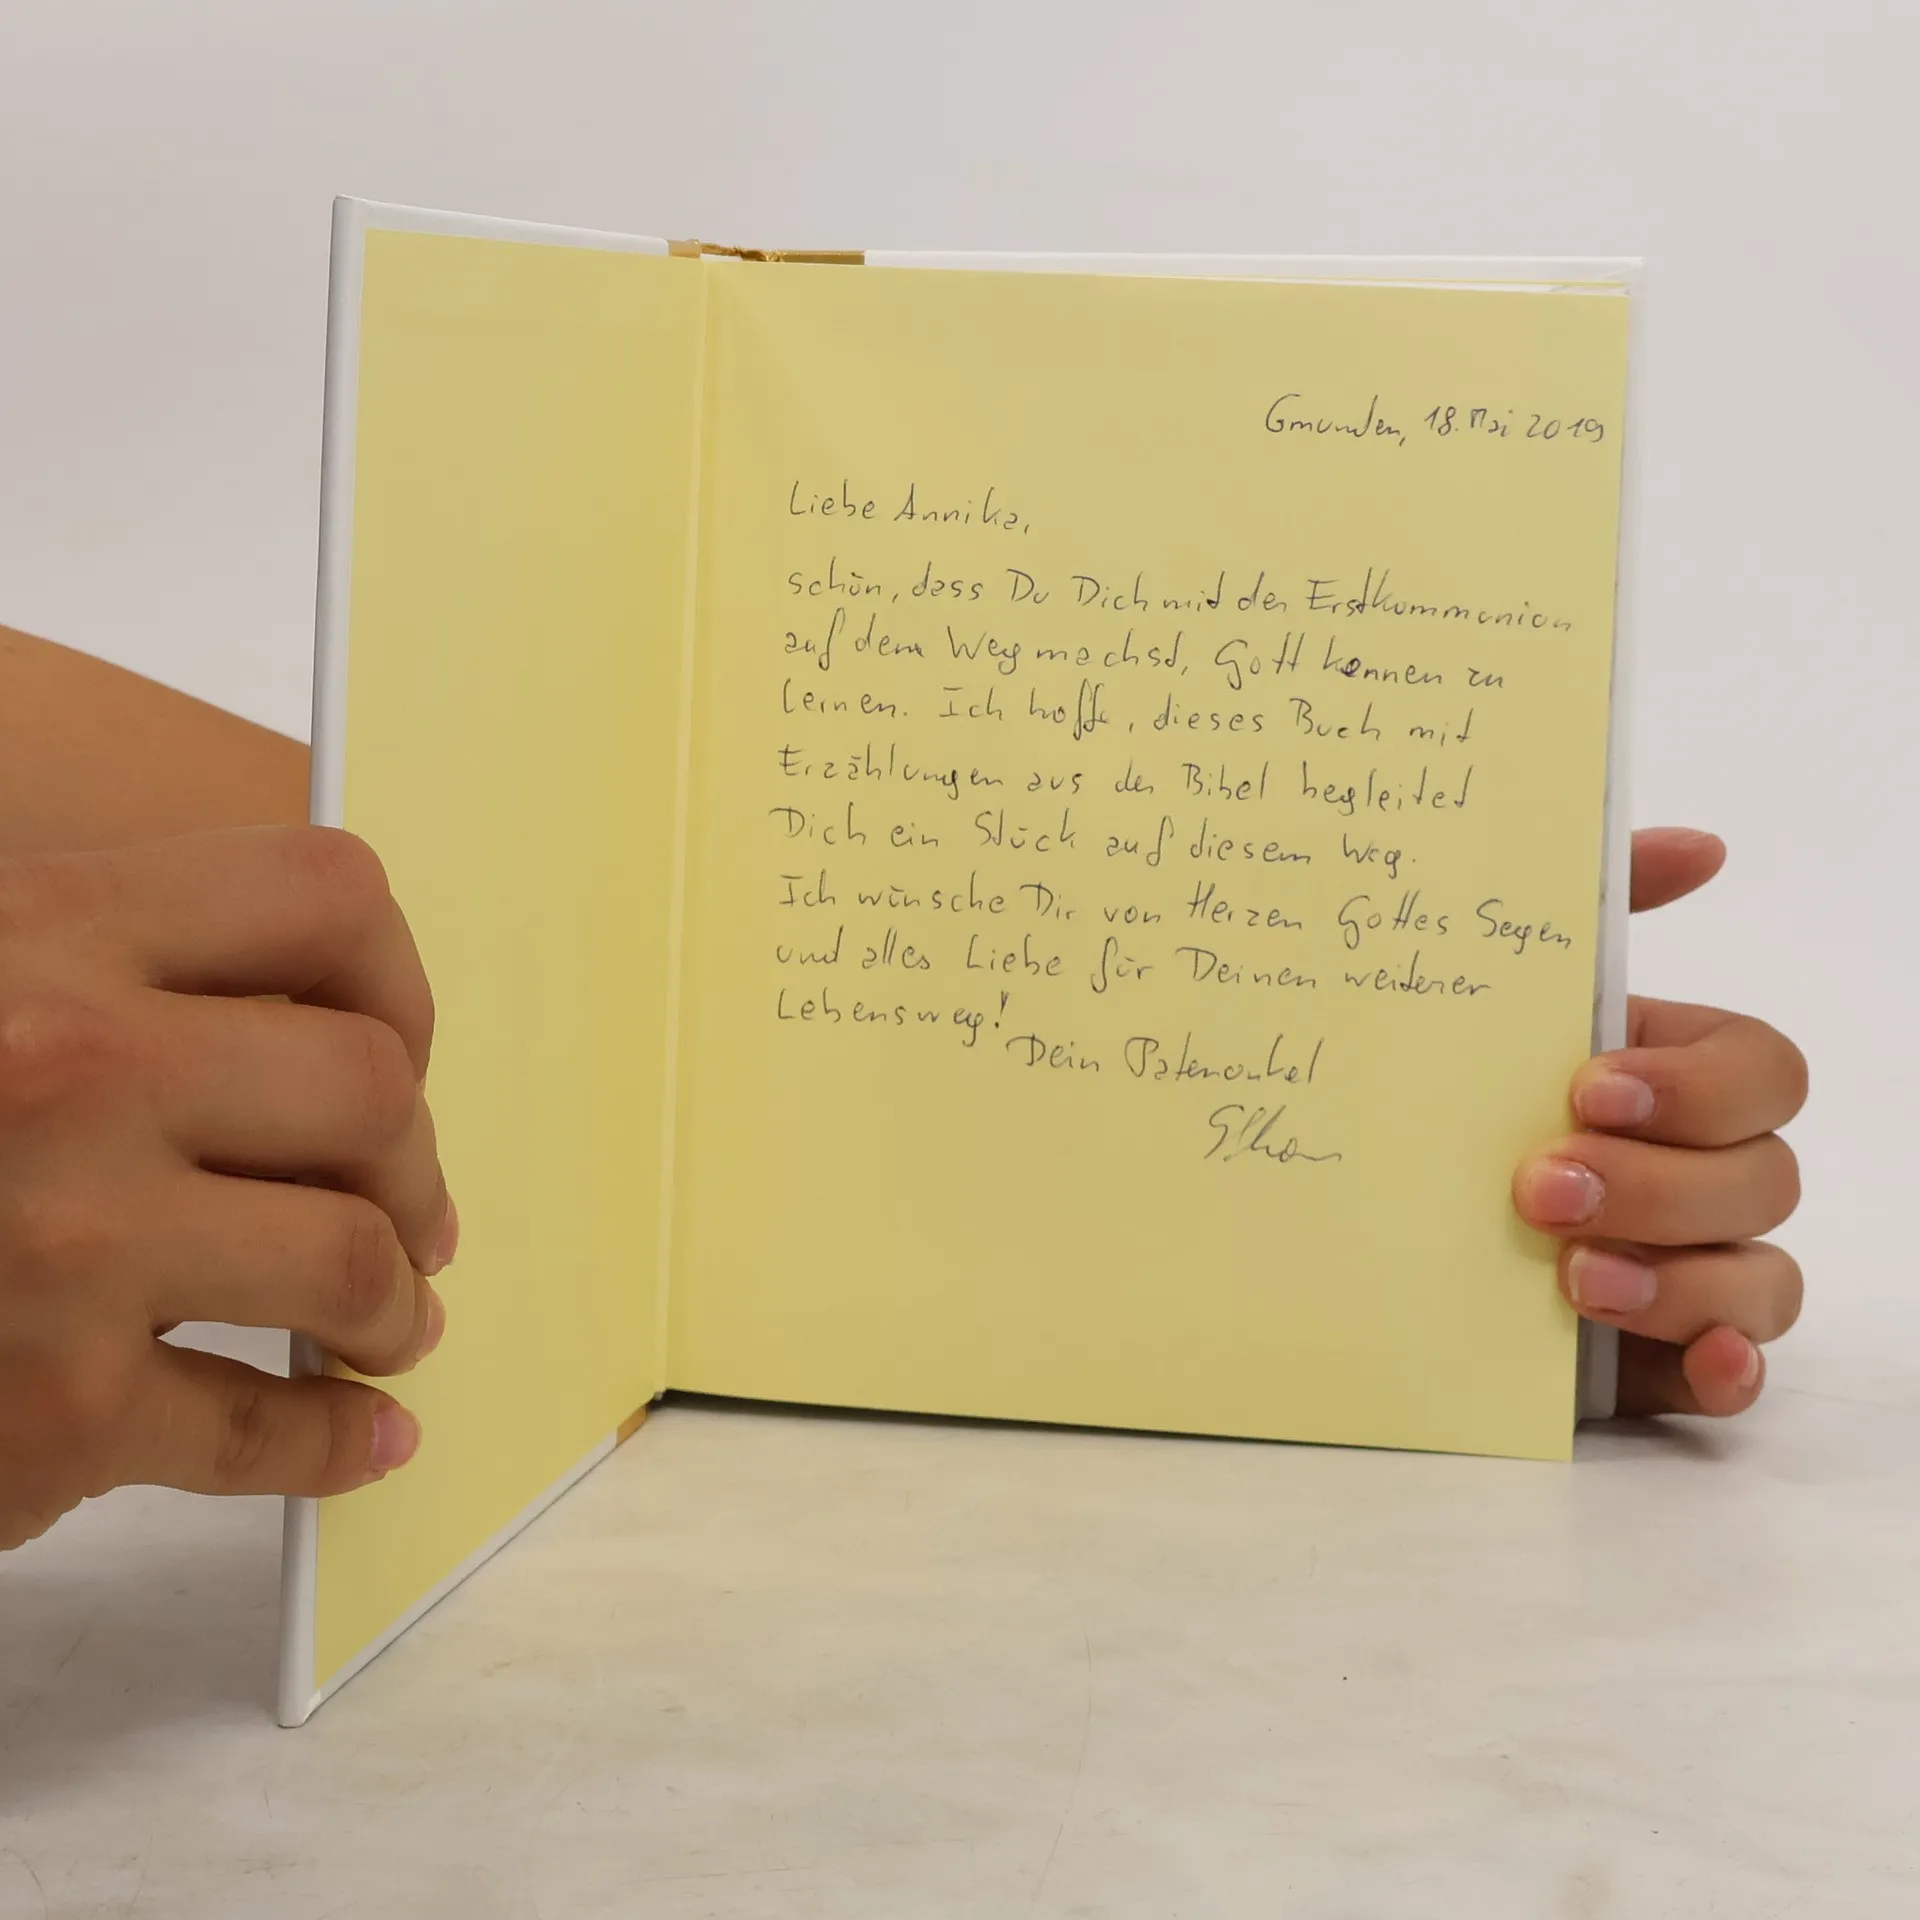 Gmunden, 18. Mai 2019
Liebe Annika,
schön, dass Du Dich mit der Erstkommunion
auf dem Weg machst, Gott kennen zu
lernen. Ich hoffe, dieses Buch mit
Erzählungen aus der Bibel begleitet
Dich ein Stück auf diesem Weg.
Ich wünsche Dir von Herzen Gottes Segen
und alles Liebe für Deinen weiteren
Lebensweg!
Dein Patenonkel